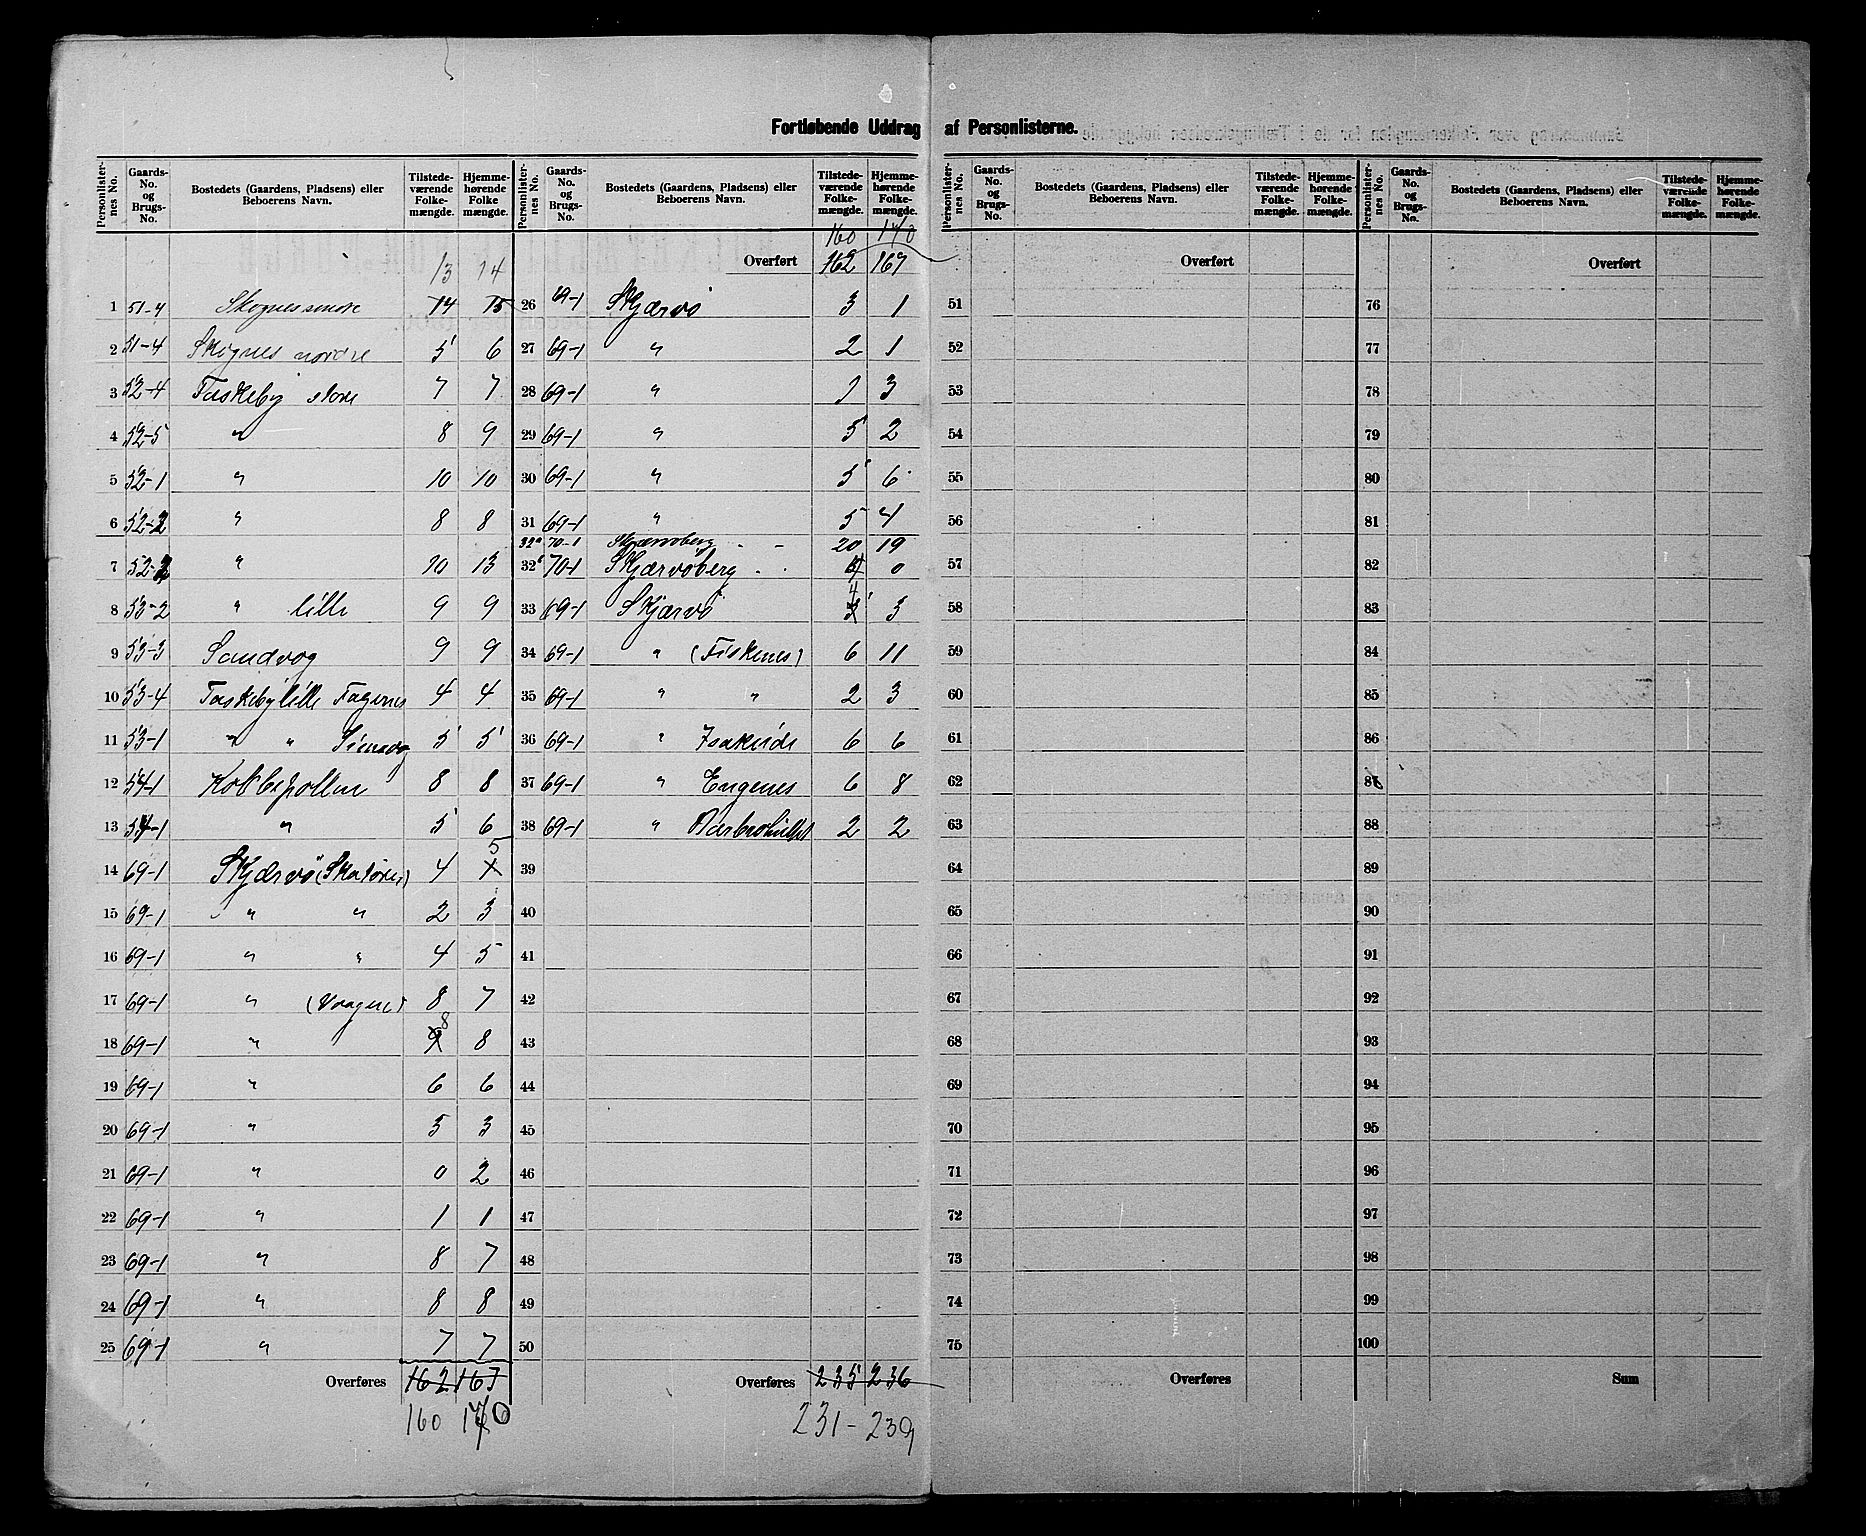 Fortløbende Uddrag af Personlisterne.
Personlister-nes No. | Gaards-No. og Brugs-No. | Bostedets (Gaardens, Pladsens) eller Beboerens Navn. | Tilstede-værende Folke-mængde. | Hjemme-hørende Folke mængde.
13 14
1 51-4 Skognes søndre 14 15
2 51-4 Skognes nordre 5 6
3 52-4 Taskeby store 7 7
4 52-5 " 8 9
5 52-1 " 10 10
6 52-2 " 8 8
7 52-2 " 10 13
8 53-2 " lille 9 9
9 53-3 Sandvog 9 9
10 53-4 Taskeby lille Fagernes 4 4
11 53-1 " " 5 5
12 54-1 Kobbepollen 8 8
13 54-1 " 5 6
14 69-1 Skjærvö (Skatören) 4 5
15 69-1 " " 2 3
16 69-1 " " 4 5
17 69-1 " (Vaagen) 8 7
18 69-1 " 8 8
19 69-1 " 6 6
20 69-1 " 5 3
21 69-1 " 0 2
22 69-1 " 1 1
23 69-1 " 8 7
24 69-1 " 8 8
25 69-1 " 7 7
Overføres 162 167
160 170
Personlister-nes No. | Gaards-No. og Brugs-No. | Bostedets (Gaardens, Pladsens) eller Beboerens Navn. | Tilstede-værende Folke-mængde. | Hjemme-hørende Folke-mængde.
160 170
Overført 162 167
26 69-1 Skjærvö 3 1
27 69-1 " 2 1
28 69-1 " 1 3
29 69-1 " 5 2
30 69-1 " 5 6
31 69-1 " 5 4
32a 70-1 Skjærvöberg - - 20 19
32b 70-1 Skjærvöberg . . 0
33 69-1 Skjærvö 4 3
34 69-1 " (Fiskenes) 6 11
35 69-1 " " 2 3
36 69-1 " Isakeide 6 6
37 69-1 " Engenes 6 8
38 69-1 " 2 2
39
40
41
42
43
44
45
46
47
48
49
50
Overføres 235 236
231 - 239
Personlister-nes No. | Gaards-No. og Brugs-No. | Bostedets (Gaardens, Pladsens) eller Beboerens Navn. | Tilstede-værende Folke-mængde. | Hjemme-hørende Folke-mængde.
Overført
51
52
53
54
55
56
57
58
59
60
61
62
63
64
65
66
67
68
69
70
71
72
73
74
75
Overføres
Personlister-nes No. | Gaards-No. og Brugs-No. | Bostedets (Gaardens, Pladsens) eller Beboerens Navn. | Tilstede-værende Folke-mængde. | Hjemme-hørende Folke-mængde.
Overført
76
77
78
79
80
81
82
83
84
85
86
87
88
89
90
91
92
93
94
95
96
97
98
99
100
Sum